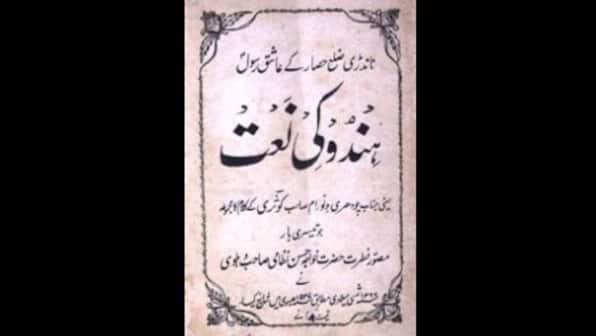 نانڈری ضلع حصار کے عاشق رسولؐ
ہندو کی نعت
یعنی جناب چودھری دلّو رام صاحب کوثری کے کلام کا مجموعہ
جو تیسری بار
مصور فطرت حضرت خواجہ حسن نظامی صاحب دہلوی
نے
میں شائع کیا